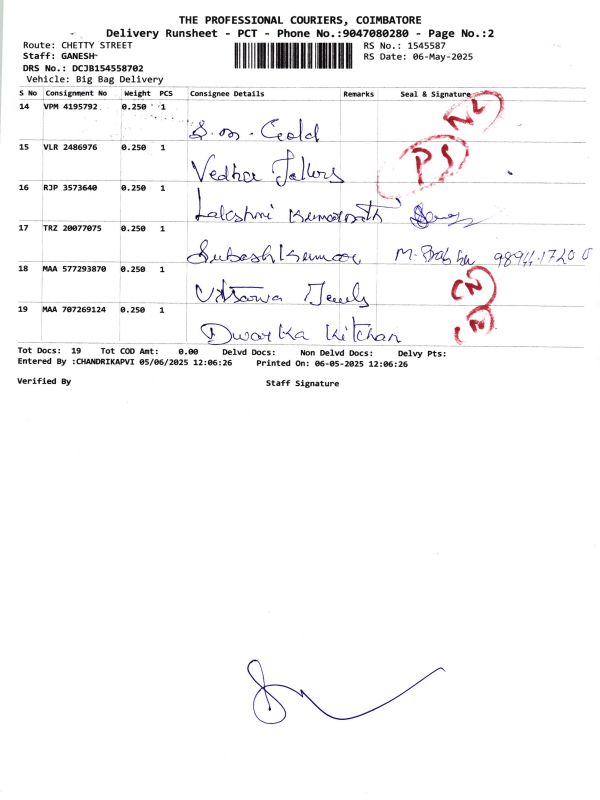 THE PROFESSIONAL COURIERS, COIMBATORE
Delivery Runsheet - PCT - Phone No.:9047080280 - Page No.:2
Route: CHETTY STREET RS No.: 1545587
Staff: GANESH RS Date: 06-May-2025
DRS No.: DCJB154558702
Vehicle: Big Bag Delivery
S No Consignment No Weight PCS Consignee Details Remarks Seal & Signature
14 VPM 4195792 0.250 1 S.m. Gold NL
15 VLR 2486976 0.250 1 Vedha PS
16 RJP 3573640 0.250 1 Lakshmi
17 TRZ 20077075 0.250 1 Subash Kumar
18 MAA 577293870 0.250 1 Jewels N
19 MAA 707269124 0.250 1 Dwarka Kitchan N
Tot Docs: 19 Tot COD Amt: 0.00 Delvd Docs: Non Delvd Docs: Delvy Pts:
Entered By :CHANDRIKAPVI 05/06/2025 12:06:26 Printed On: 06-05-2025 12:06:26
Verified By Staff Signature